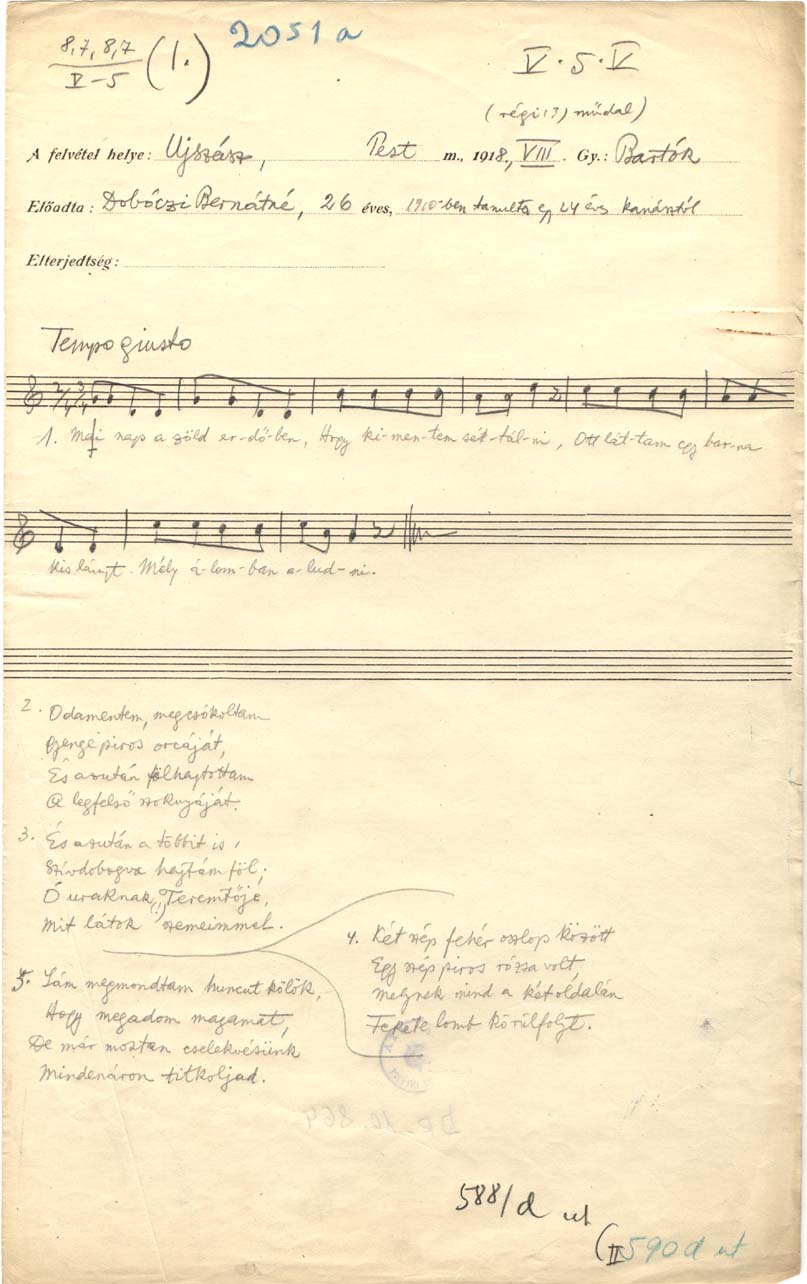 8,7,8,7
V–5
(1.)
2051 a
V. 5. V
(régi(?) műdal)
A felvétel helye: Ujszász, Pest m., 1918., VIII. Gy.: Bartók
Előadta: Dobóczi Bernátné, 26 éves, 1910-ben tanulta egy 24 éves kanásztól
Elterjedtség:
Tempo giusto
1. Mai nap a zöld er-dő-ben, Hogy ki-men-tem sét-tál-ni, Ott lát-tam egy bar-na
kis lányt. Mély á-lom-ban a-lud-ni.
2. Odamentem, megcsókoltam
Gyenge piros orcáját,
És azután fölhajtottam
A legfelső szoknyáját.
3. És azután a többit is,
Szívdobogva hajtám föl;
Ó uraknak Teremtője,
Mit látok (!) szemeimmel.
4. Két szép fehér oszlop között
Egy szép piros rózsa volt,
Melynek mind a két oldalán
Fekete lomb körülfolyt.
5. Lám megmondtam huncut kölök,
Hogy megadom magamat,
De már mostan cselekvésünk
Mindenáron titkoljad.
588/d ut
(II 590 d ut